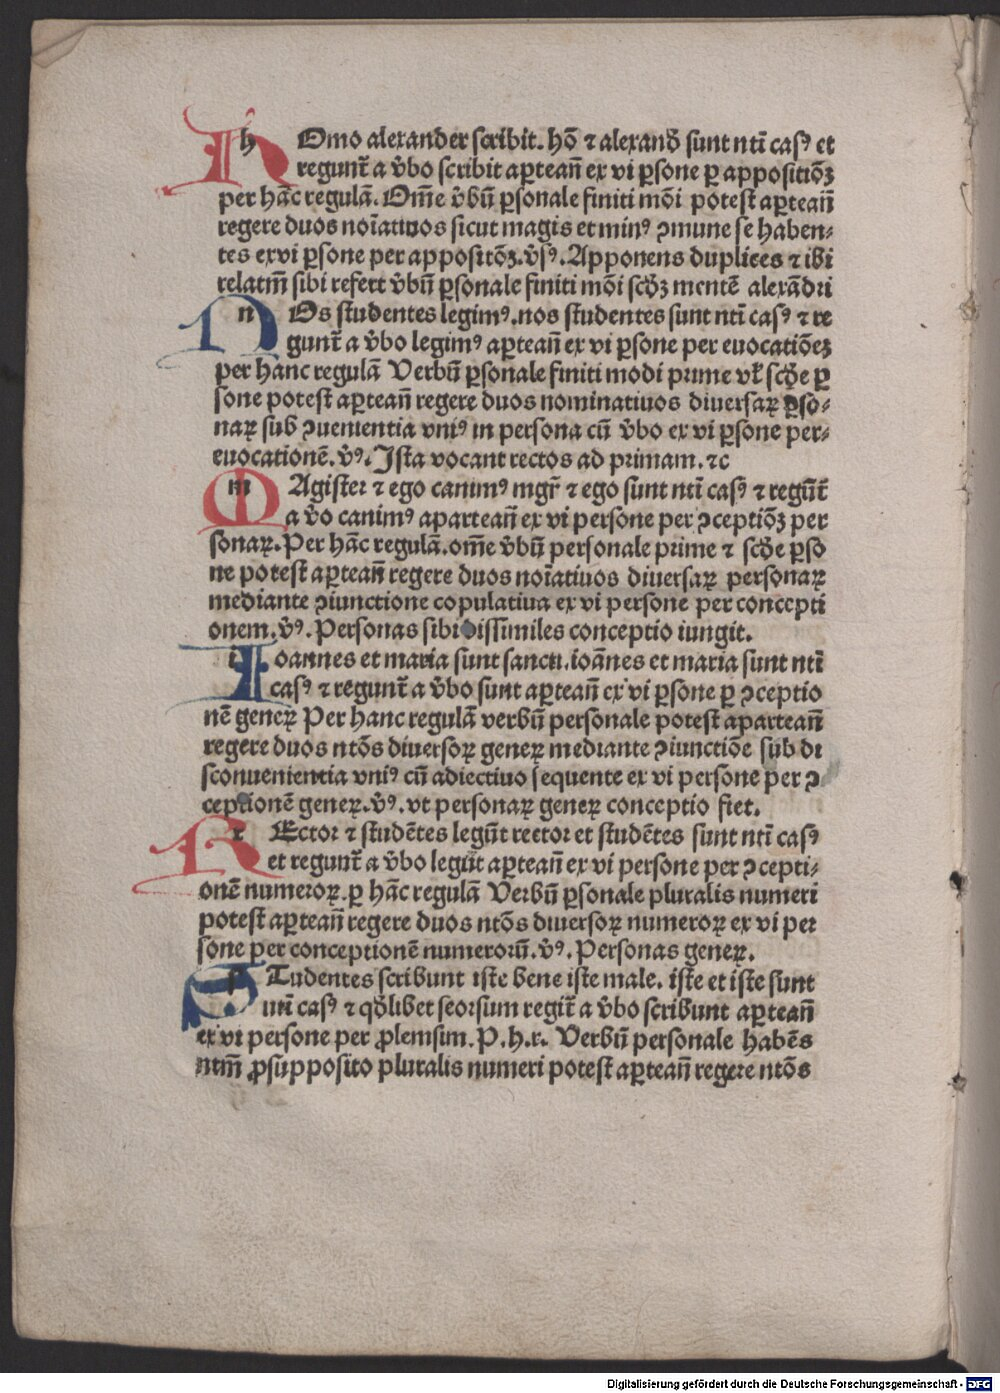 hOmo alexander scribit. hō ⁊ alexand̄ sunt nti̅ casꝰ et
regunt̄ a v̄bo scribit aꝑtean̄ ex vi ꝑsone ꝑ appositiōꝫ
per hāc regulā. Om̄e v̄bū ꝑsonale finiti mōi potest aꝑtean̄
regere duos noīatiuos sicut magis et minꝰ ꝯmune se haben⸗
tes ex vi ꝑsone per appositōꝫ. v̄sꝰ. Apponens duplices ⁊ ibi
relatm̄ sibi refert v̄bū ꝑsonale finiti mōi scd̄ꝫ mentē alexādri
nOs studentes legimꝰ. nos studentes sunt nti̅ casꝰ ⁊ re
gunt̄ a v̄bo legimꝰ aꝑtean̄ ex vi ꝑsone per euocatiōeꝫ
per hanc regulā Verbū ꝑsonale finiti modi prime vl̄ scd̄e ꝑ
sone potest aꝑtean̄ regere duos nominatiuos diuersaꝝ ꝑso⸗
naꝝ sub ꝯuenientia vniꝰ in persona cū v̄bo ex vi ꝑsone per⸗
euocationē. v̄ꝰ. Ista vocant rectos ad primam. ⁊c
mAgister ⁊ ego canimꝰ mgr̄ ⁊ ego sunt nti̅ casꝰ ⁊ regūt̄
a v̄o canimꝰ apartean̄ ex vi persone per ꝯceptiōꝫ per
sonaꝝ. Per hāc regulā. om̄e v̄bū personale prime ⁊ scd̄e ꝑso
ne potest aꝑtean̄ regere duos noīatiuos diuersaꝝ personaꝝ
mediante ꝯiunctione copulatiua ex vi persone per concepti
onem. v̄ꝰ. Personas sibi dissimiles conceptio iungit.
iOannes et maria sunt sancti. ioānes et maria sunt nti̅
casꝰ ⁊ regunt̄ a v̄bo sunt aꝑtean̄ ex vi ꝑsone ꝑ ꝯceptio
nē geneꝝ Per hanc regulā verbū personale potest apartean̄
regere duos ntōs diuersoꝝ geneꝝ mediante ꝯiunctiōe sub di
sconuenientia vniꝰ cū adiectiuo sequente ex vi persone per ꝯ
ceptionē geneꝝ. v̄ꝰ. vt personaꝝ geneꝝ conceptio fiet.
rEctor ⁊ studētes legūt rector et studētes sunt nti̅ casꝰ
et regunt̄ a v̄bo legūt aꝑtean̄ ex vi persone per ꝯcepti⸗
onē numeroꝝ. ꝑ hāc regulā Verbū ꝑsonale pluralis numeri
potest aꝑtean̄ regere duos ntōs diuersoꝝ numeroꝝ ex vi per
sone per conceptionē numerorū. v̄ꝰ. Personas geneꝝ.
sTudentes scribunt iste bene iste male. iste et iste sunt
nti̅ casꝰ ⁊ qd̄libet seorsum regit̄ a v̄bo scribunt aꝑtean̄
ex vi persone per ꝓlemsim. P. h. r. Verbū personale habēs
ntm̄ ꝓsupposito pluralis numeri potest aꝑtean̄ regere ntōs
Digitalisierung gefördert durch die Deutsche Forschungsgemeinschaft - DFG